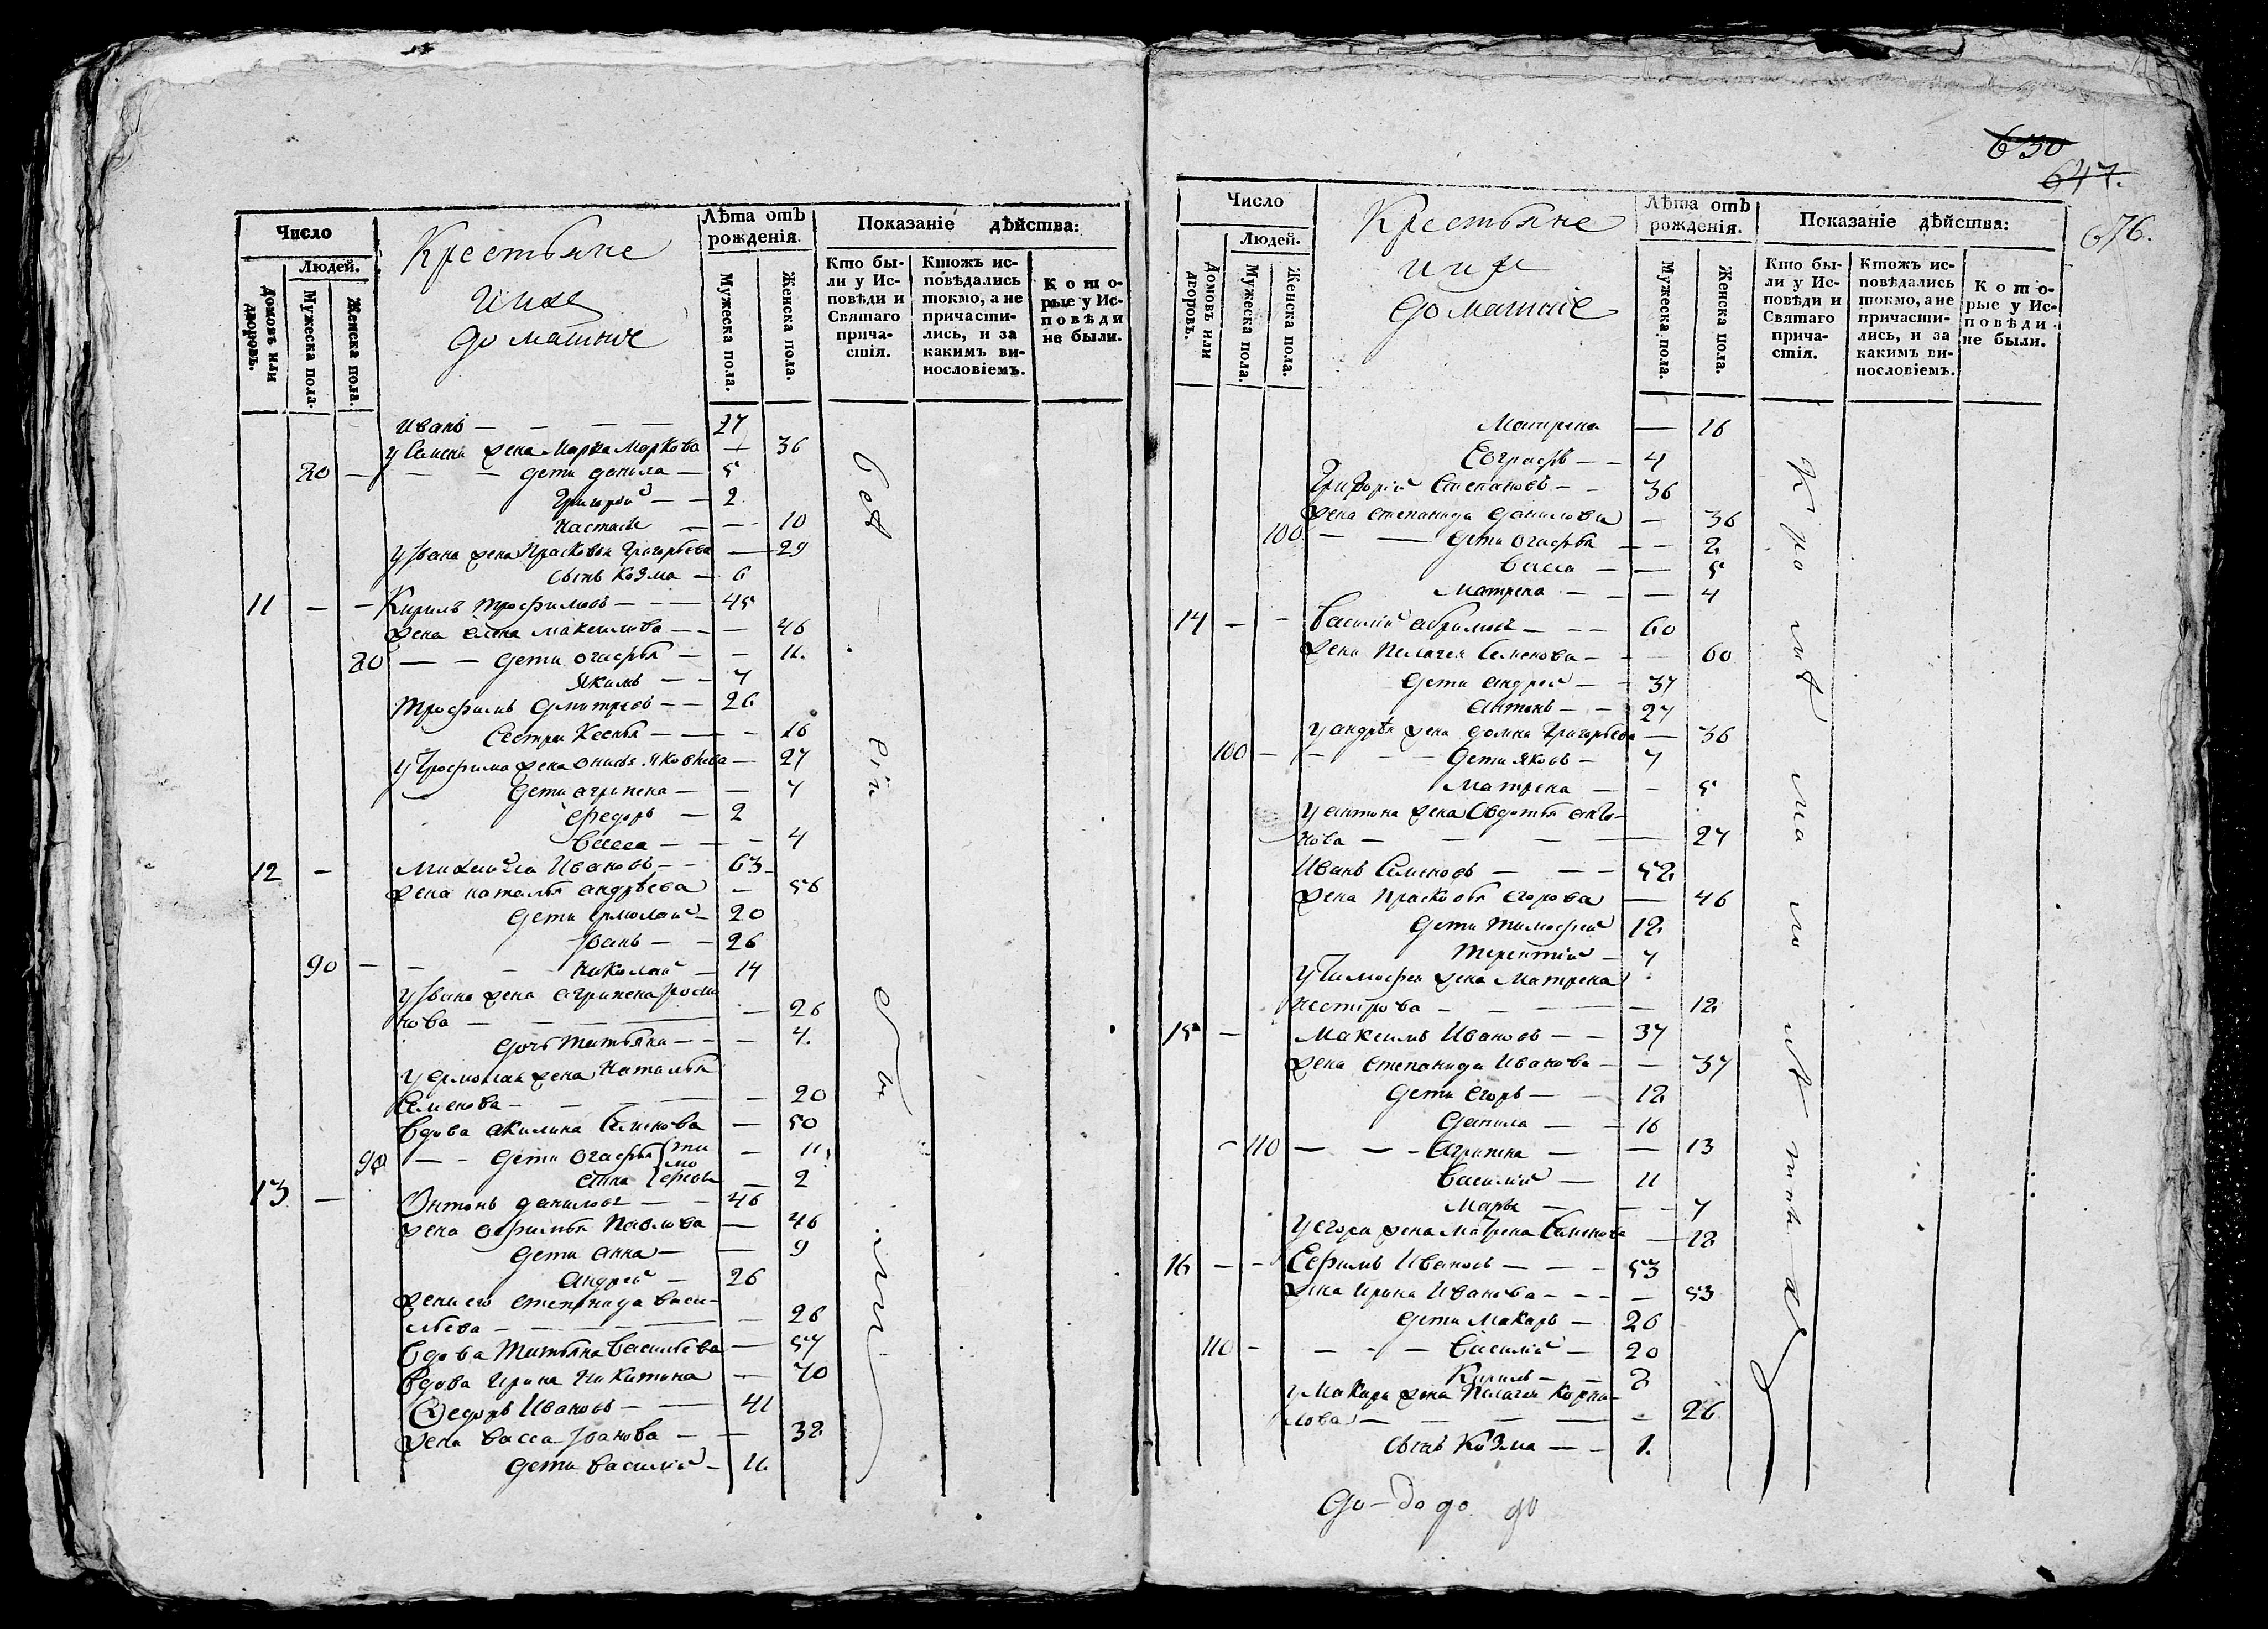 Число
Людей.
Домовъ или дворовъ.
Мужеска пола.
Женска пола.
Крестьяне
и ихъ
домашніе
Лѣта отъ рожденія.
Мужеска пола.
Женска пола.
Показаніе дѣйства:
Кто бы-
ли у Ис-
повѣди и
Святаго
прича-
стія.
Ктожъ ис-
повѣдались
токмо, а не
причасти-
лись, и за
какимъ ви-
нословіемъ.
Кото-
рые у Ис-
повѣди
не были.
Иванъ — — — — 27
У Семена жена Марѳа Маркова — 36
80 — — — дети Данила — 5
Григорей — — 2
Настасья — — 10
У Ивана жена Прасковья Григорьева — 29
сынъ Козма — 6
11 — — Кирилъ Трофимовъ — — — 45
жена Елена Максимова — — — 46
80 — — дети Огафья — — 11
Якимъ — — 7
Трофимъ Дмитревъ — — 26
Сестра Ксенья — — — 16
У Трофима жена Яковлева — 27
дети Агрипена — — 7
Федоръ — 2
Васса — — — 4
12 — Михайла Ивановъ — — 63
жена Наталья Андрѣева — 56
дети Ермолай — 20
Иванъ — — 26
90 — — — Николай — 14
У Ивана жена Агрипена Рома
нова — — — — — 26
дочь Татьяна — — — 4
У Ермолая жена Наталья
Семенова — — — — — 20
Вдова Акилина Семенова — 50
90 — — дети Огафья — 11
— 2
13 — Онтонъ Даниловъ — — 46
жена Афимья Павлова — 46
дети Анна — — 9
Андрей — 26
жена его Степанида Васи-
льева — — — — — 26
Вдова Татьяна Васильева — 57
Вдова Ирина Никитина — 70
Федоръ Ивановъ — — 41
жена Васса Иванова — — 32
дети Василій — 11
630
647.
676.
Число
Людей.
Домовъ или дворовъ.
Мужеска пола.
Женска пола.
Крестьяне
и ихъ
домашніе
Лѣта отъ рожденія.
Мужеска пола.
Женска пола.
Показаніе дѣйства:
Кто бы-
ли у Ис-
повѣди и
Святаго
прича-
стія.
Ктожъ ис-
повѣдались
токмо, а не
причасти-
лись, и за
какимъ ви-
нословіемъ.
Кото-
рые у Ис-
повѣди
не были.
Матрена — 16
Евграфъ — — 4
Григорій Степановъ — — 36
жена Степанида Данилова — 36
100 — — дети Огафья — — 2
Васса — — 5
Матрена — — — 4
14 — — Василій Абрамовъ — — — 60
жена Пелагея Семенова — — — 60
дети Андрей — — 37
Антонъ — — 27
У Андрѣя жена Домна Григорьева — 36
100 — — — — дети Яковъ — 7
Матрена — — 5
У Антона жена Овдотья
нова — — — — — 27
Иванъ Семеновъ — — — 52
жена Прасковья Егорова — 46
дети Тимофей 12
Терентій — 7
У Тимофея жена Матрена
Нестерова — — — — — 12
15 — Максимъ Ивановъ — — 37
жена Степанида Иванова — — 37
дети Егоръ — — 12
Данила — — 16
110 — — — Агрипена — — 13
Василій — 11
Марья — — — 7
У Егора жена Матрена Семенова — 12
16 — — Ефимъ Ивановъ — — — 53
жена Ирина Иванова — — — — 53
дети Макаръ — 26
110 — — — — Василій — 20
Кирилъ — — 2
У Макара жена Пелагея Корни-
лова — — — — — 26
сынъ Козма — — 1
До — до до до